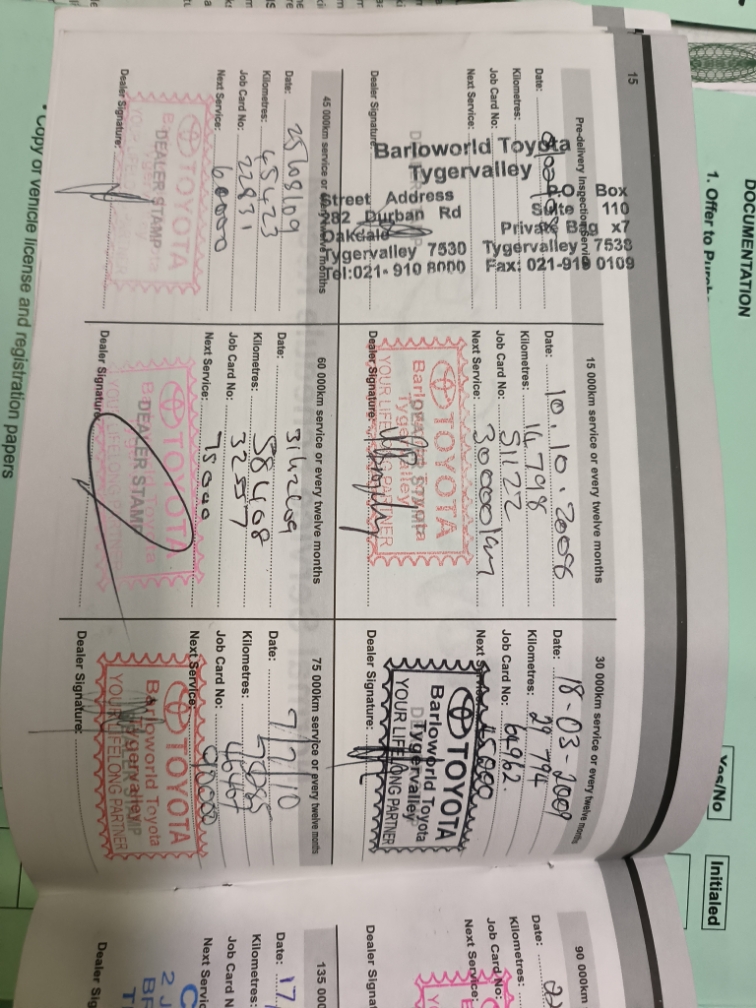 DOCUMENTATION
1. Offer to
Yes/No
Initialed
15
Pre-delivery Inspection Service
Date:
Kilometres:
Job Card No:
Next Service:
Dealer Signature:
Barloworld Toyota
Tygervalley
Street Address
282 Durban Rd
Oakdale
Tygervalley 7530
Tel:021- 910 8000
P.O Box
Suite 110
Private Bag x7
Tygervalley 7538
Fax: 021-919 0109
15 000km service or every twelve months
Date: 10.10.2008
Kilometres: 14798
Job Card No: 51122
Next Service: 30000km
Dealer Signature:
TOYOTA
Barloworld Toyota
Tygervalley
YOUR LIFELONG PARTNER
30 000km service or every twelve months
Date: 18-03-2009
Kilometres: 29 794
Job Card No: 64962.
Next Service: 45000
Dealer Signature:
TOYOTA
Barloworld Toyota
Tygervalley
YOUR LIFELONG PARTNER
45 000km service or every twelve months
Date: 25/08/09
Kilometres: 45423
Job Card No: 22831
Next Service: 60000
Dealer Signature:
TOYOTA
DEALER STAMP
60 000km service or every twelve months
Date:
Kilometres: 58408
Job Card No:
Next Service: 75000
Dealer Signature:
TOYOTA
DEALER STAMP
75 000km service or every twelve months
Date: 7/7/10
Kilometres:
Job Card No:
Next Service: 90000
Dealer Signature:
TOYOTA
Barloworld Toyota
Tygervalley
YOUR LIFELONG PARTNER
90 000km
Date:
Kilometres:
Job Card No:
Next Service:
Dealer Signa
135 000
Date: 17
Kilometres:
Job Card N
Next Servic
Dealer Sig
Copy of vehicle license and registration papers